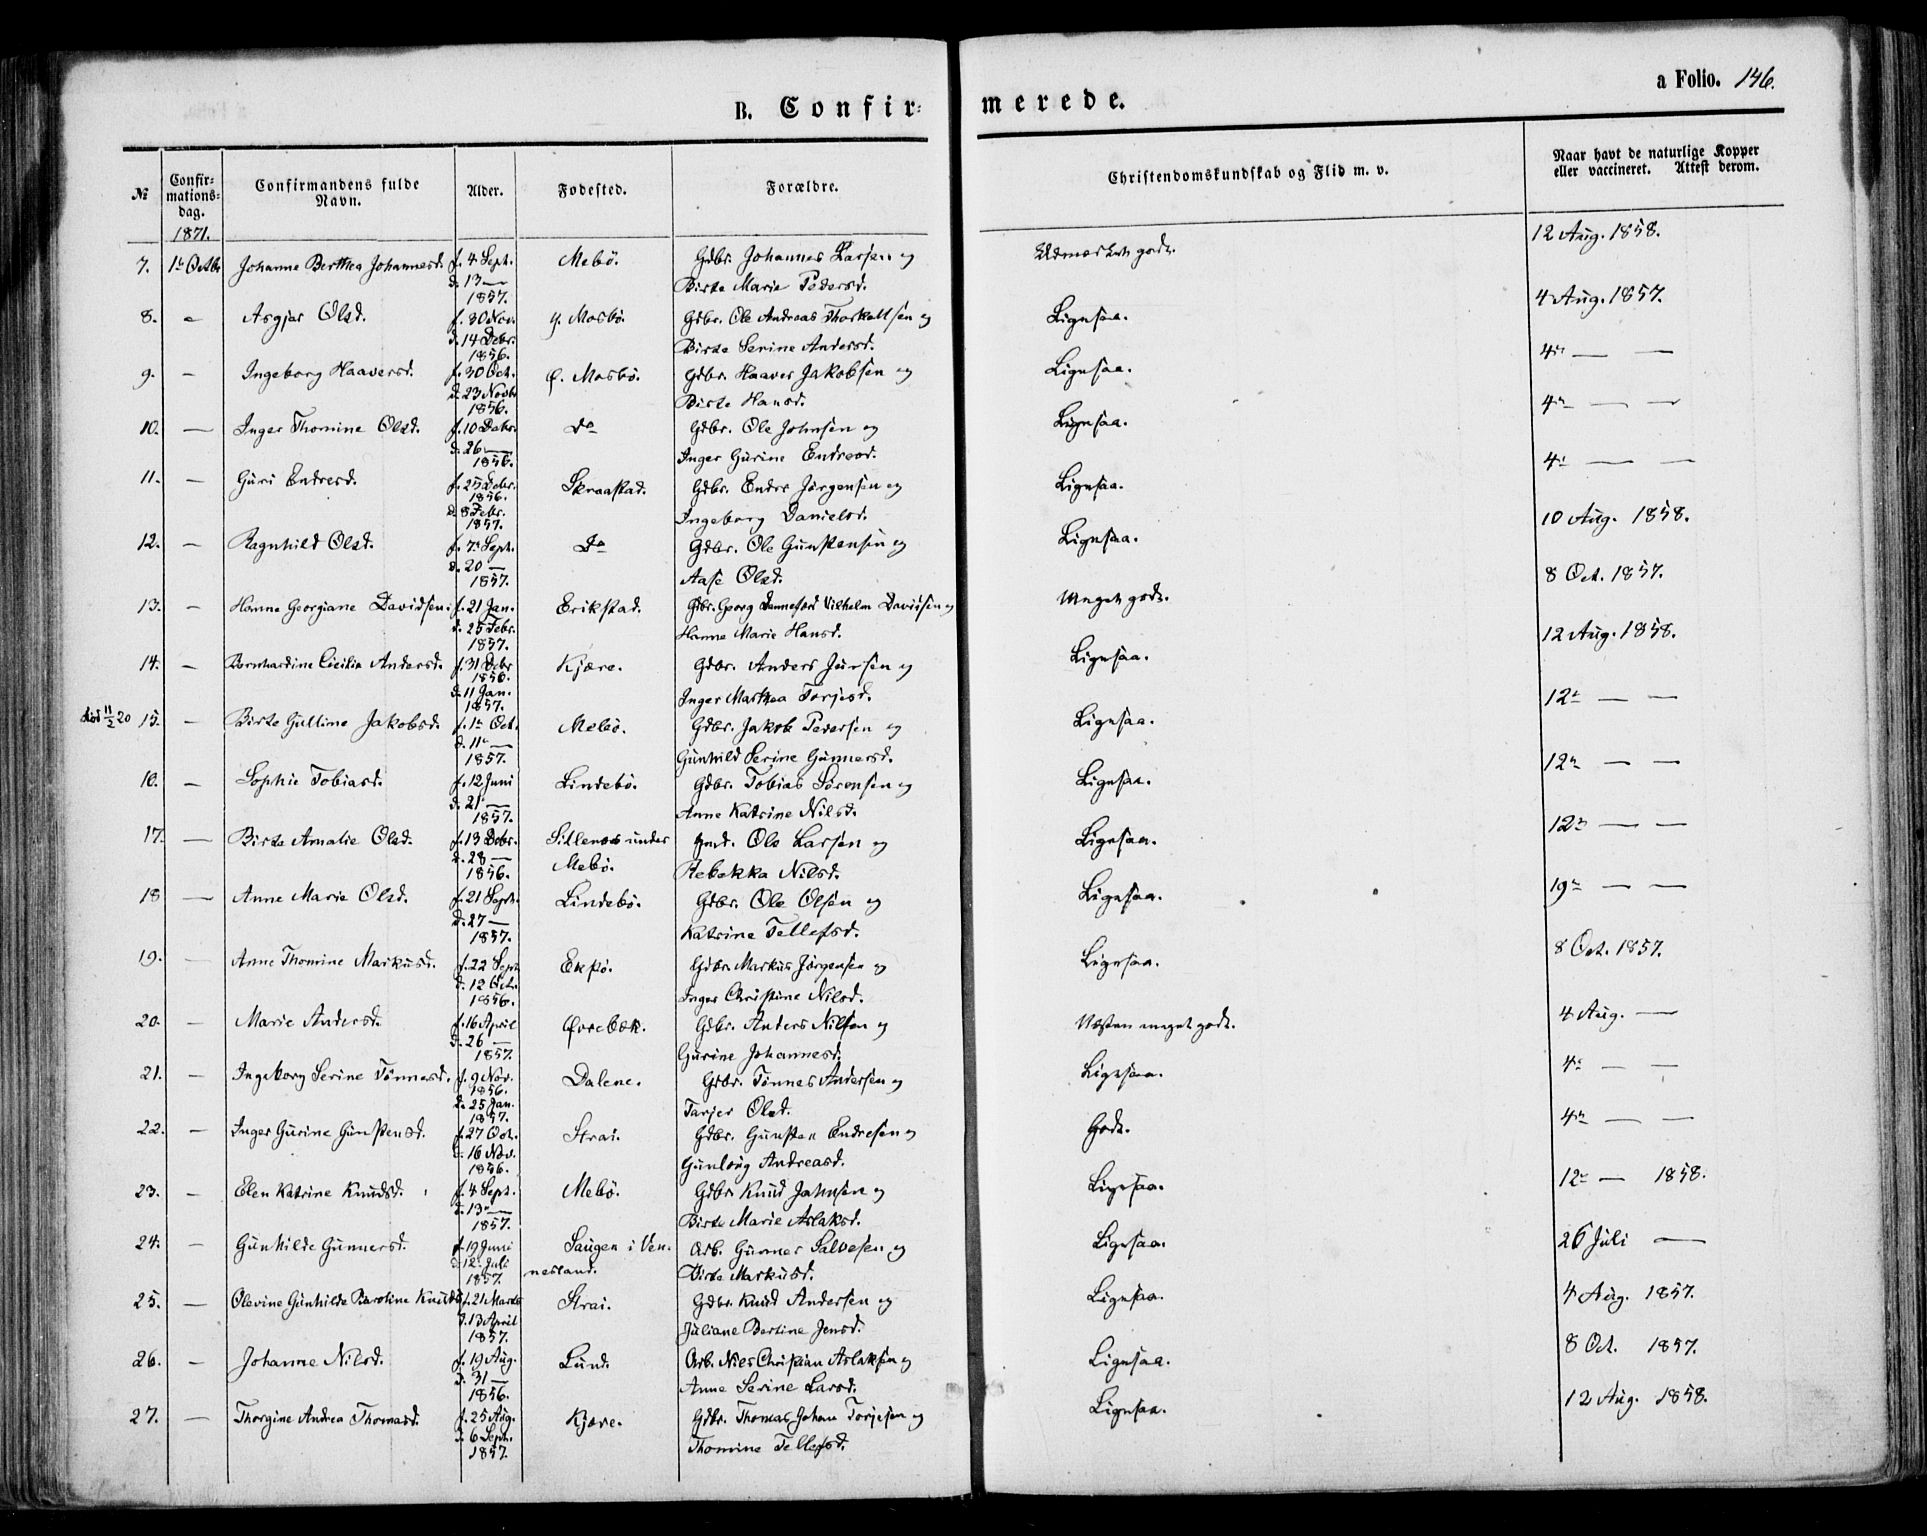 a Folio. 146.
B. Confirmerede.
№ Confirmationsdag. Confirmandens fulde Navn. Alder. Fødested. Forældre. Christendomskundskab og Flid m. v. Naar havt de naturlige Kopper eller vaccineret. Attest derom.
1871.
7. 1ste Octbr Johanne Berthea Johannesd. f. 4 Sept. Mebö. Gdbr. Johannes Larsen og Udmærket godt. 12 Aug. 1858.
d. 13 — 1857. Birte Marie Pedersd.
8. — Asgjer Olsd. f. 30 Nov. y. Mosbö. Gdbr. Ole Andreas Thorkeltsen og Ligesaa. 4 Aug. 1857.
d. 14 Debr. 1856. Birte Serine Andersd.
9. — Ingeborg Haaversd. f. 30 Oct. Ø. Mosbö. Gdbr. Haaver Jakobsen og Ligesaa. 4de — —
d. 23 Novbr 1856. Birte Hansd.
10. — Inger Thomine Olsd. f. 10 Debr. Do Gdbr. Ole Johnsen og Ligesaa. 4de — —
d. 26 — 1856. Inger Gurine Endresd.
11. — Guri Endresd. f. 25 Debr. 1856. Skraastad. Gdbr. Endre Jörgensen og Ligesaa. 4de — —
d. 8 Febr. 1857. Ingeborg Danielsd.
12. — Ragnhild Olsd. f. 7de Sept. Do Gdbr. Ole Gunstensen og Ligesaa. 10 Aug. 1858.
d. 20 — 1857. Aase Olsd.
13. — Hanne Georgiane Davidsen. f. 21 Jan. Erikstad. Gdbr. Georg Dannefærd Vilhelm Davidsen og Meget godt. 8 Oct. 1857.
d. 25 Febr. 1857. Hanne Marie Hansd.
14. — Bernhardine Cicilie Andersd. f. 31 Debr 1856. Kjære. Gdbr. Anders Jensen og Ligesaa. 12 Aug. 1858.
d. 11 Jan. 1857. Inger Marthea Torjesd.
död 11/2 20 15. — Birte Gulline Jakobsd. f. 1ste Oct. Mebö. Gdbr. Jakob Pedersen og Ligesaa. 12te — —
d. 11te — 1857. Gunhild Serine Gunnersd.
16. — Sophie Tobiasd. f. 12 Juni Lindebö. Gdbr. Tobias Sörensen og Ligesaa. 12te — —
d. 21 — 1857. Anne Katrine Nilsd.
17. — Birte Amalie Olsd. f. 13 Debr. Sillenes under Gmd. Ole Larsen og Ligesaa. 12te — —
d. 28 — 1856. Mebö. Rebekka Nilsd.
18 — Anne Marie Olsd. f. 21 Sept. Lindebö. Gdbr. Ole Olsen og Ligesaa. 19de — —
d. 27 — 1857. Katrine Tellefsd.
19. — Anne Thomine Markusd. f. 22 Sept Eksö. Gdbr. Markus Jörgensen og Ligesaa. 8 Oct. 1857.
d. 12 Oct. 1856. Inger Christine Nilsd.
20. — Marie Andersd. f. 16 April Øvrebæk. Gdbr. Anders Nilsen og Næsten meget godt. 4 Aug. —
d. 26 — 1857. Gurine Johannesd.
21. — Ingeborg Serine Tönnesd. f. 9 Nov. 1856. Dalene. Gdbr. Tönnes Andersen og Ligesaa. 4de — —
d. 25 Jan. 1857. Tarjer Olsd.
22. — Inger Gurine Gunstensd. f. 27 Oct. Strai. Gdbr. Gunsten Endresen og Godt. 4de — —
d. 16 Nov. 1856. Gunloug Andreasd.
23. — Elen Katrine Knudsd. f. 4 Sept. Mebö. Gdbr Knud Jahnsen og Ligesaa. 12te — 1858.
d. 13de — 1857. Birte Marie Aslaksd.
24. — Gunhilde Gunnersd. f. 19 Juni Saugen i Ven- Arb. Gunner Salvesen og Ligesaa. 26 Juli —
d. 12 Juli 1857. nesland. Birte Markusd.
25. — Olevine Gunhilde Karoline Knudsd. f. 21 Marts Strai. Gdbr. Knud Andersen og Ligesaa. 4 Aug. 1857.
d. 13 April 1857. Juliane Bertine Jensd.
26. — Johanne Nilsd. f. 19 Aug. Lund. Arb. Niels Christian Aslaksen og Ligesaa. 8 Oct. 1857.
d. 31 — 1856. Anne Serine Larsd.
27. — Thorgine Andrea Thomasd. f. 25 Aug. Kjære. Gdbr. Thomas Johan Torjesen og Ligesaa. 12 Aug. 1858.
d. 6 Sept. 1857. Thomine Tellefsd.